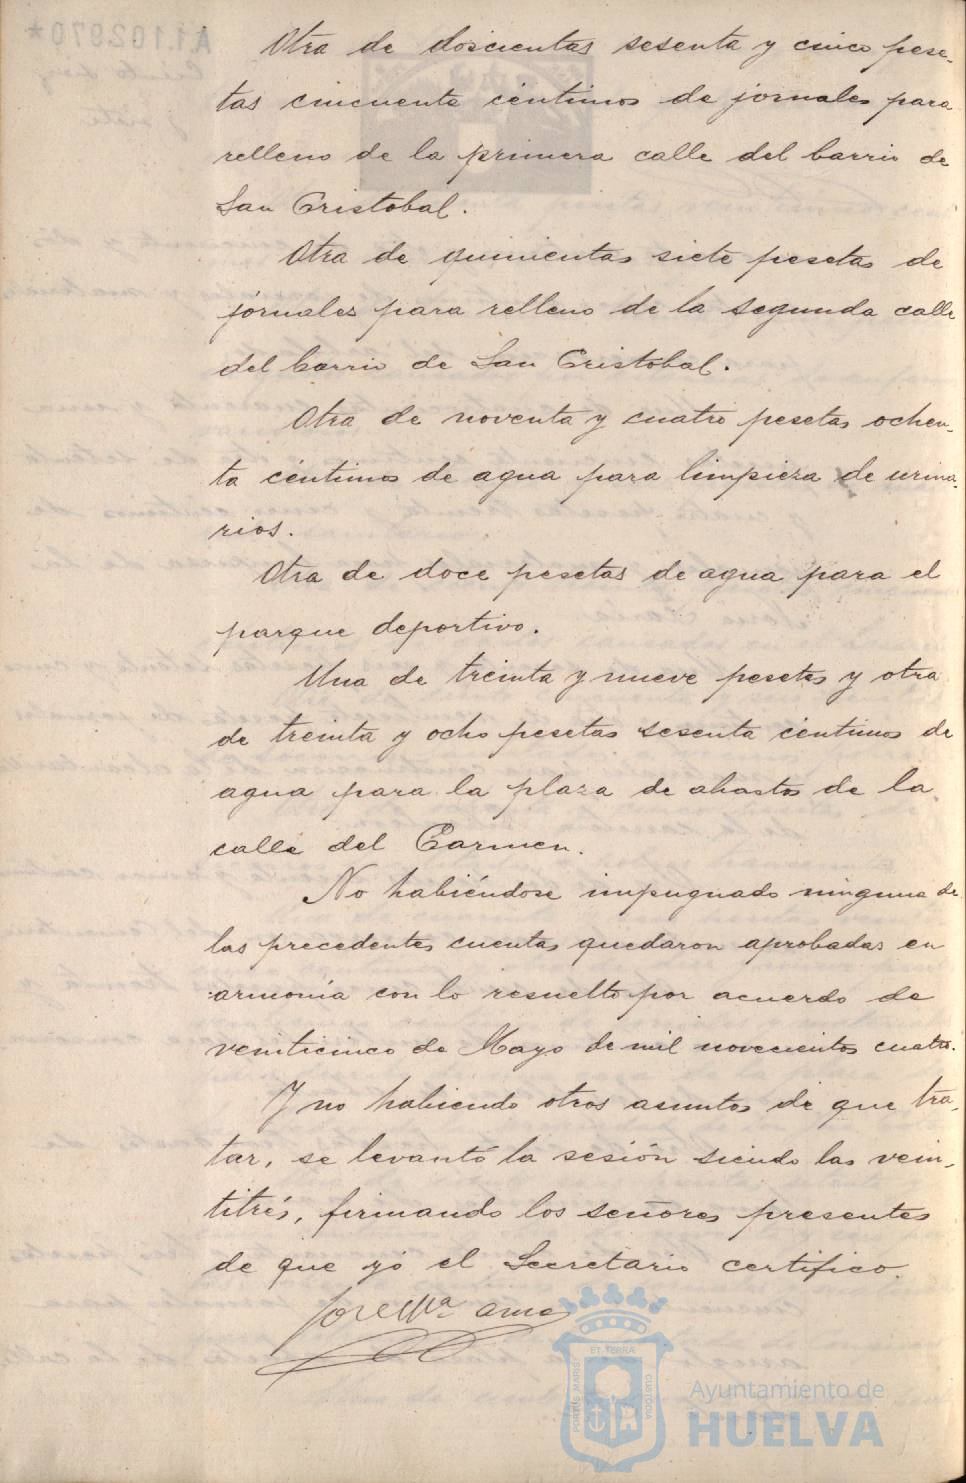 Otra de doscientas sesenta y cinco pese-
tas cincuenta céntimos de jornales para
relleno de la primera calle del barrio de
San Cristobal.
Otra de quinientas siete pesetas de
jornales para relleno de la segunda calle
del barrio de San Cristobal.
Otra de noventa y cuatro pesetas ochen-
ta céntimos de agua para limpieza de urina-
rios.
Otra de doce pesetas de agua para el
parque deportivo.
Una de treinta y nueve pesetas y otra
de treinta y ocho pesetas sesenta céntimos de
agua para la plaza de abastos de la
calle del Carmen.
No habiéndose impugnado ninguna de
las precedentes cuentas quedaron aprobadas en
armonía con lo resuelto por acuerdo de
veinticinco de Mayo de mil novecientos cuatro.
Y no habiendo otros asuntos de que tra-
tar, se levantó la sesión siendo las vein-
titrés, firmando los señores presentes
de que yó el Secretario certifico.
José Mª
A1.102970*
PORTUS MARIS ET TERRÆ CUSTODIA
Ayuntamiento de
HUELVA